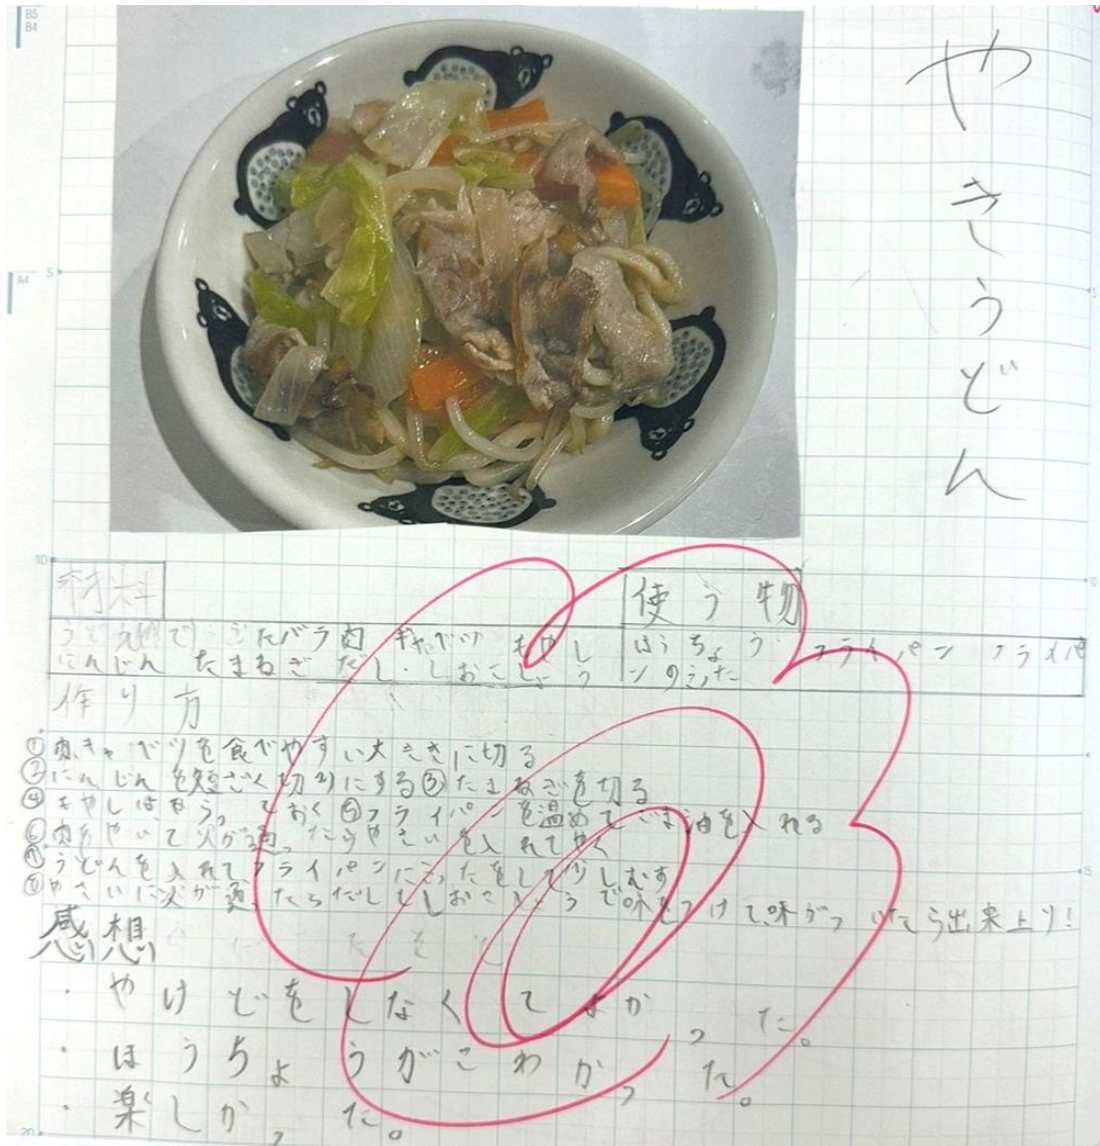 やきうどん
B5
B4
A4
5
10
材料
使う物
うどん ぶたバラ肉 キャベツ もやし
にんじん たまねぎ だし・しおこしょう
ほうちょう フライパン フライパ
ンのふた
作り方
①肉キャベツを食べやすい大きさに切る
②にんじんを短ざく切りにする③たまねぎを切る
④もやしはあらっておく⑤フライパンを温めてごま油を入れる
⑥肉をやいて火が通ったらやさいを入れてやく
⑦うどんを入れてフライパンにふたをして少しむす
⑧やさいに火が通ったらだしとしおこしょうで味をつけて、味がついたら出来上り!
感想
・やけどをしなくてよかった。
・ほうちょうがこわかった。
・楽しかった。
15
20